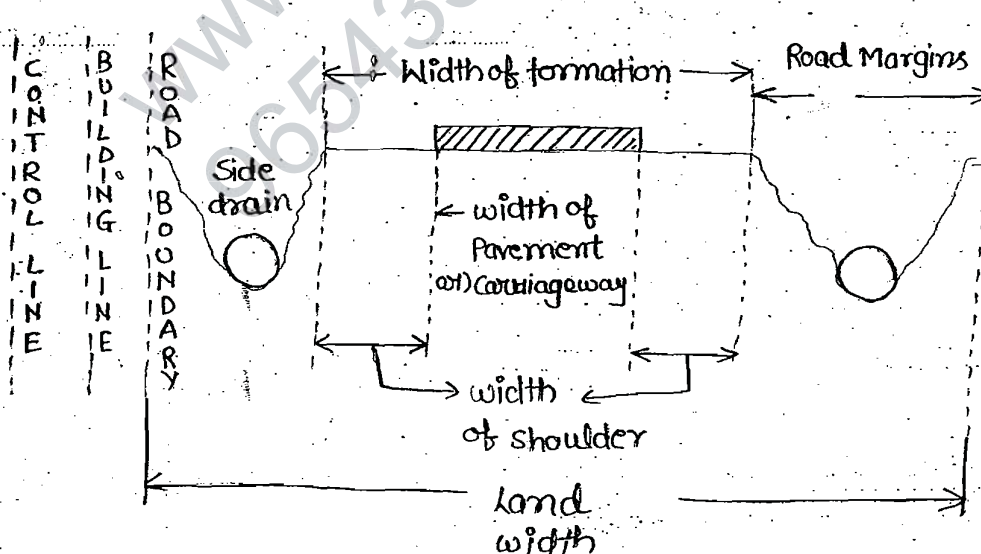 CONTROL LINE
BUILDING LINE
ROAD BOUNDARY
Width of formation
Road Margins
Side
drain
width of
Pavement
or) Carriageway
width
of shoulder
Land
width